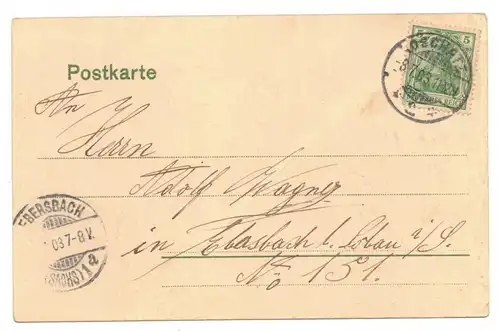 Postkarte
5
An
Herrn
Adolf Wagner
in Ebersbach b. Löbau i/S.
No 151.
EBERSBACH
03 7-8 V.
(SACHS) 1a